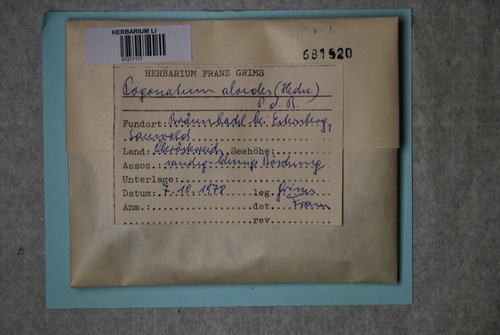 HERBARIUM LI
681520
HERBARIUM FRANZ GRIMS
Pogonatum aloides (Hedw.)
P. d. B.
Fundort: bei Esternberg,
Sauwald
Land: Oberösterreich Seehöhe:
Assoz. sandig-lehmige Böschung
Unterlage:
Datum: 7.10.1978 leg. Grims
Anm.: det. Franz
rev.